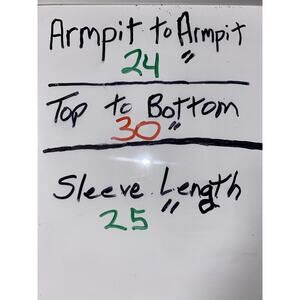 Armpit to Armpit
24"
Top to Bottom
30"
Sleeve Length
25"